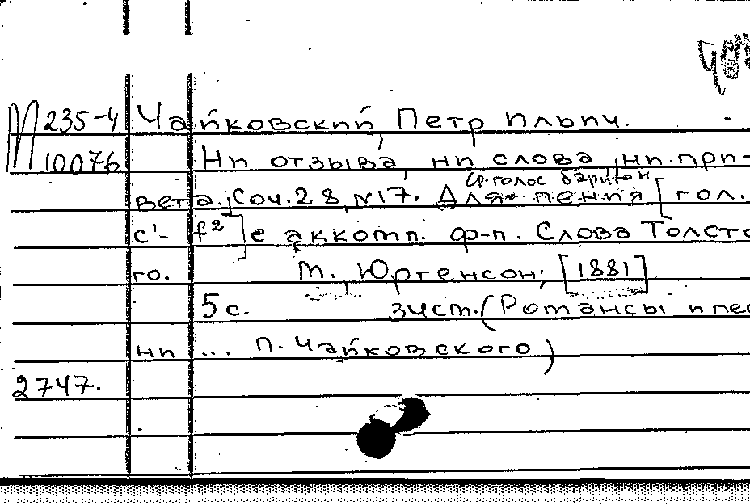 П 235-4 Чайковский, Петр Ильич.
10076 Ни отзыва, ни слова, ни при-
ср. голос баритон
вета. Соч. 28, №17. Для пения [гол.
c¹- f²] с аккомп. ф-п. Слова Толсто
го. М., Юргенсон, [1881]
5 с. (Романсы и пес
ни ... П. Чайковского)
2747.